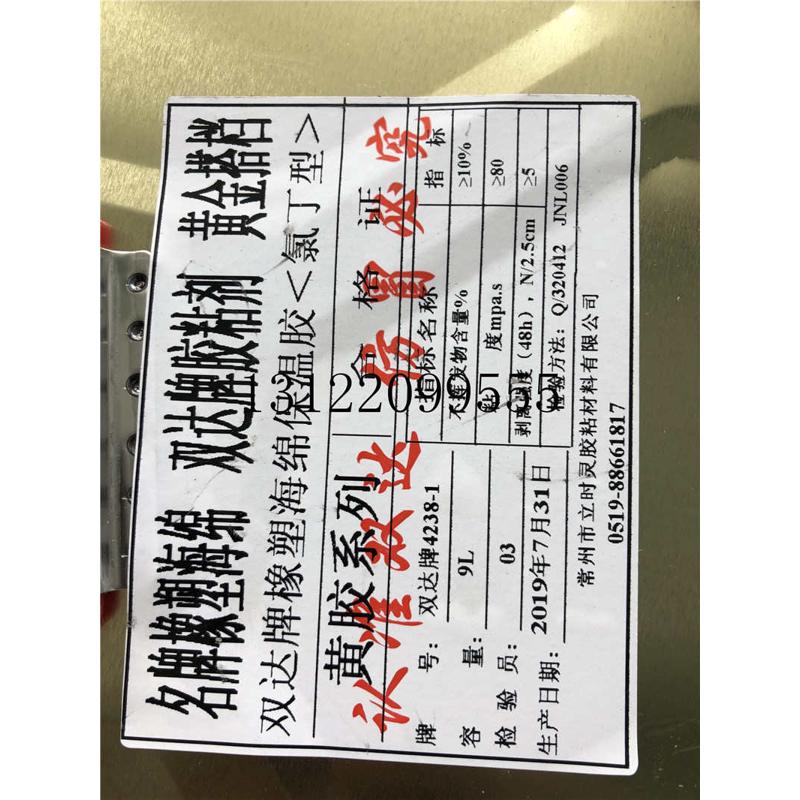 名牌橡塑海绵 双达牌胶粘剂 黄金搭档
双达牌橡塑海绵保温胶<氯丁型>
黄胶系列
合格证
认准双达 仿冒必究
牌号: 双达牌4238-1
容量: 9L
检验员: 03
生产日期: 2019年7月31日
指标名称 指标
不挥发物含量% ≥10%
粘度mpa.s ≥80
剥离强度(48h), N/2.5cm ≥5
检验方法: Q/320412 JNL006
常州市立时灵胶粘材料有限公司
0519-88661817